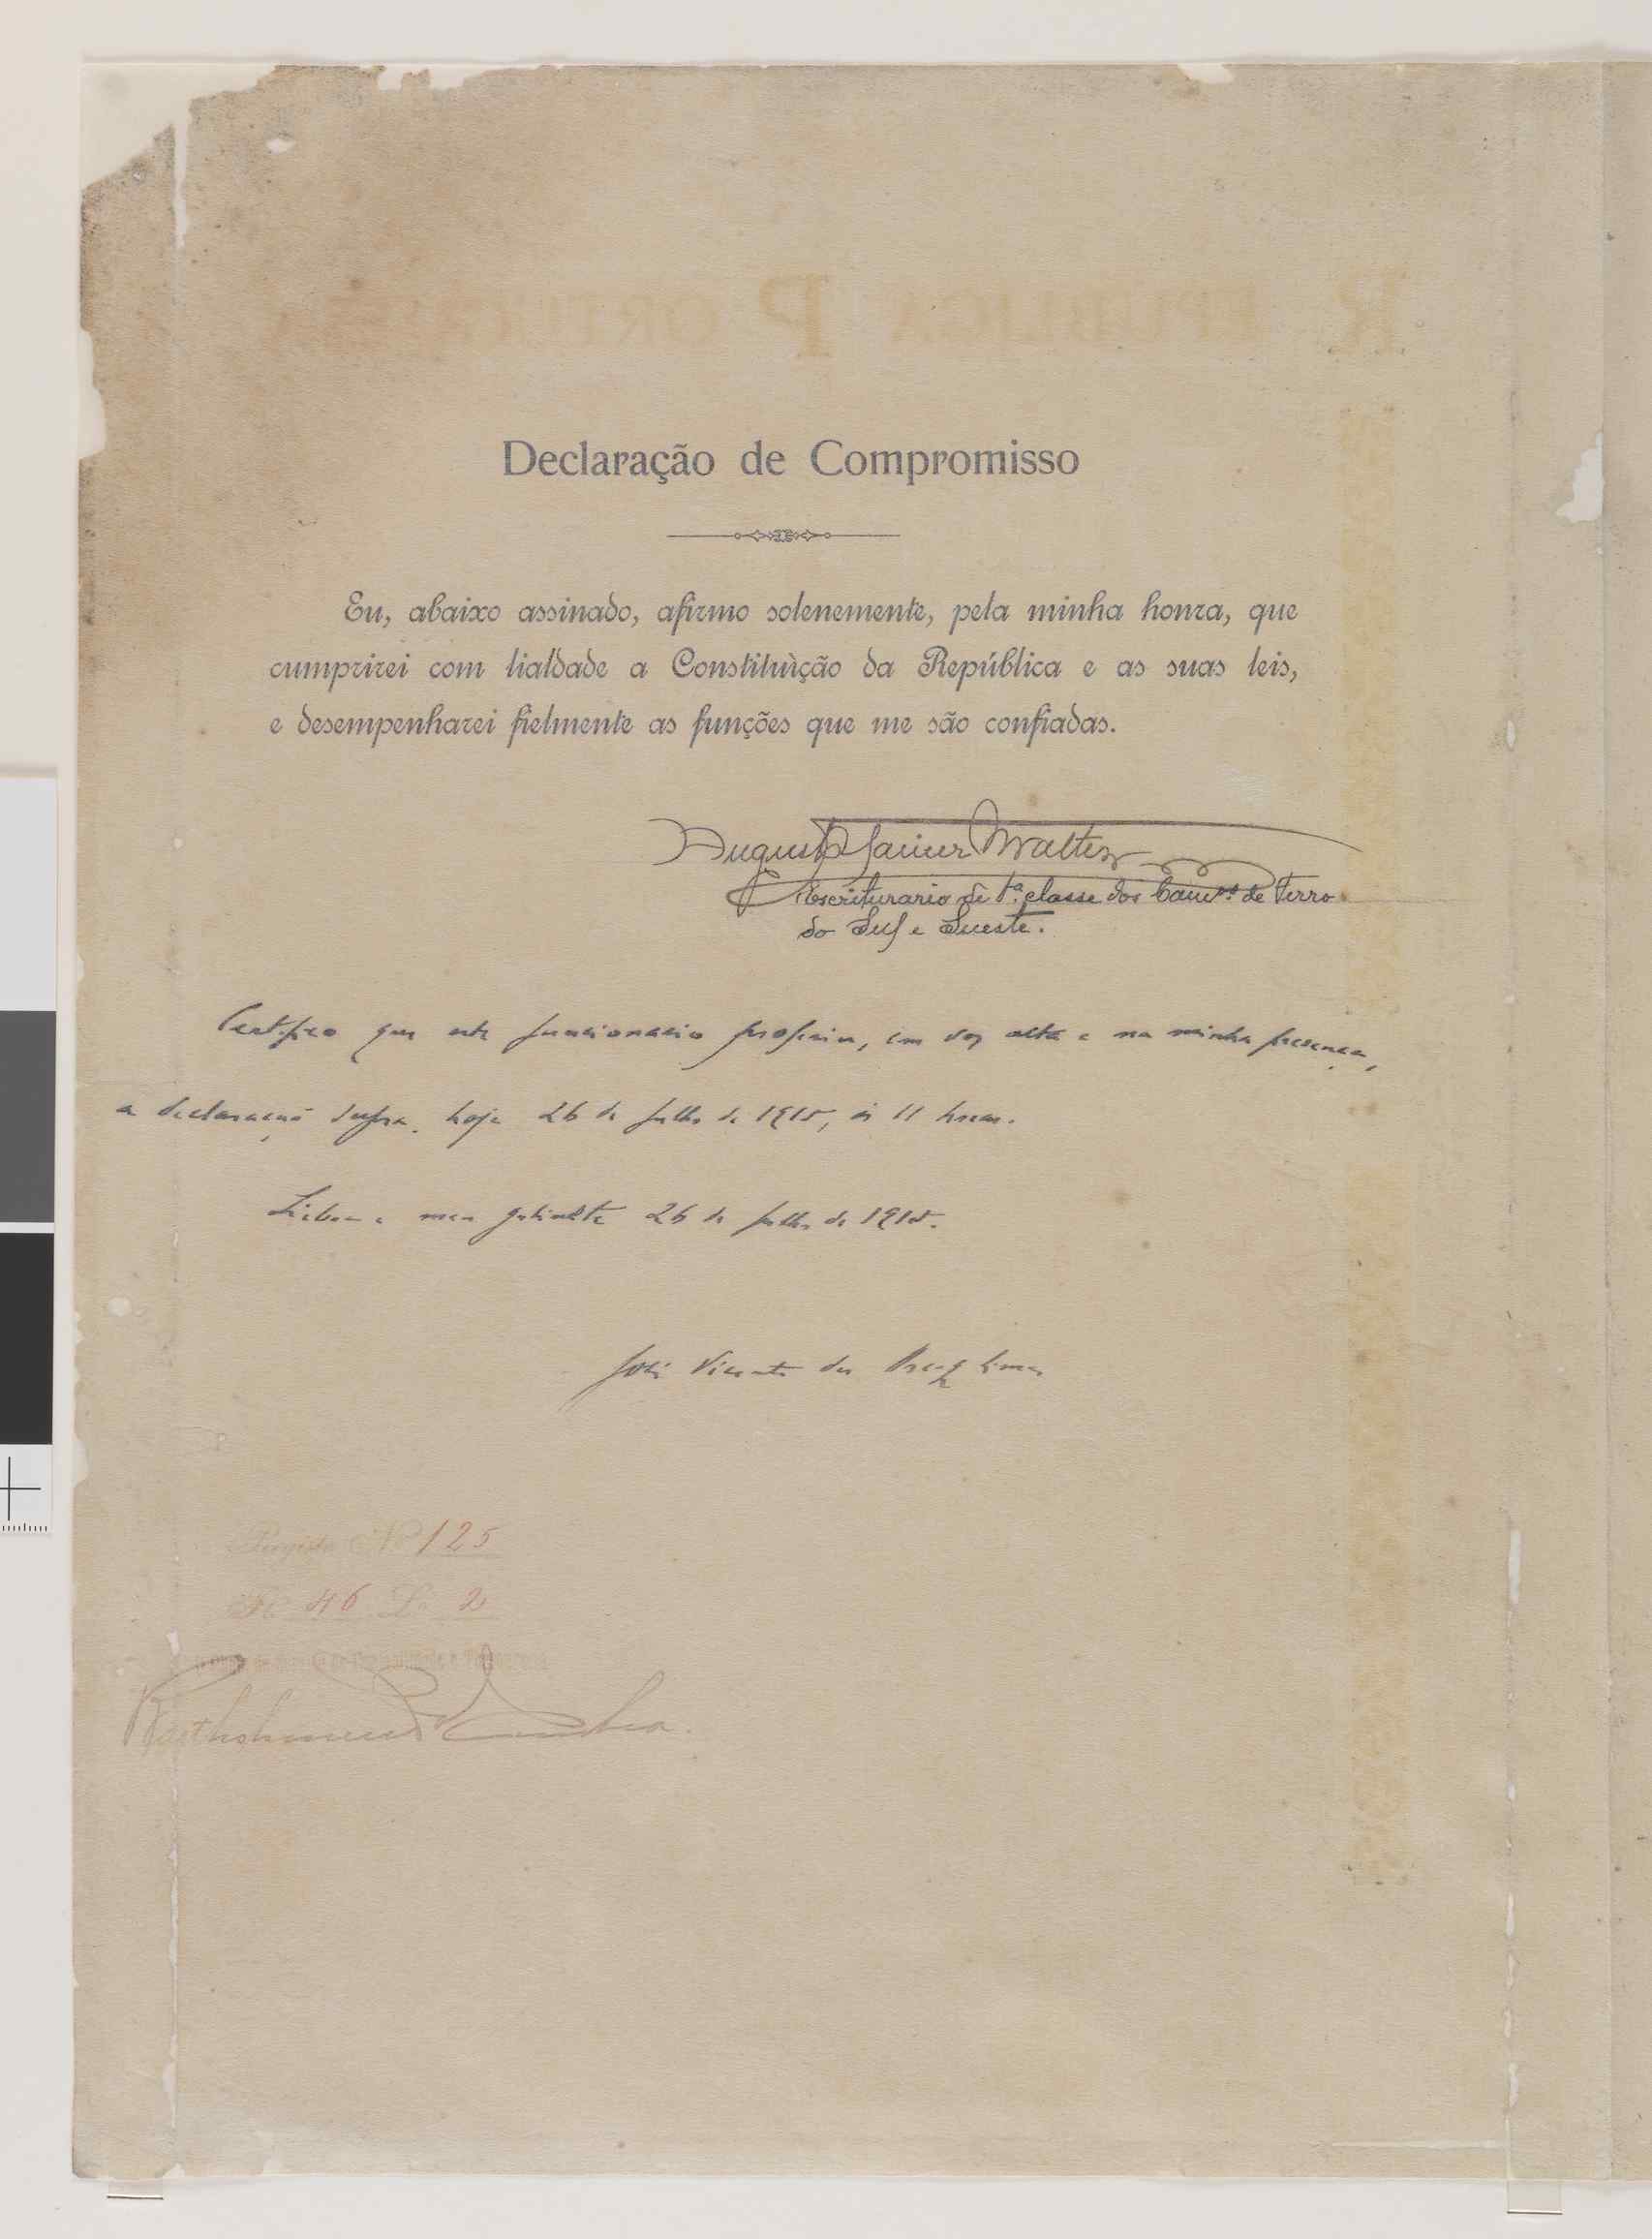 Declaração de Compromisso
Eu, abaixo assinado, afirmo solenemente, pela minha honra, que
cumprirei com lialdade a Constituìção da República e as suas leis,
e desempenharei fielmente as funções que me são confiadas.
Augusto Xavier Walter
Escriturario de 1.ª classe dos Cam.os de Ferro
do Sul e Sueste.
Certifico que este funcionario proferiu, em voz alta e na minha presença,
a declaração supra, hoje 26 de julho de 1915, ás 11 horas.
Lisboa e meu gabinete 26 de julho de 1915.
José Vicente de
Registo Nº 125
Fl. 46 Lº 2
Bartholomeu